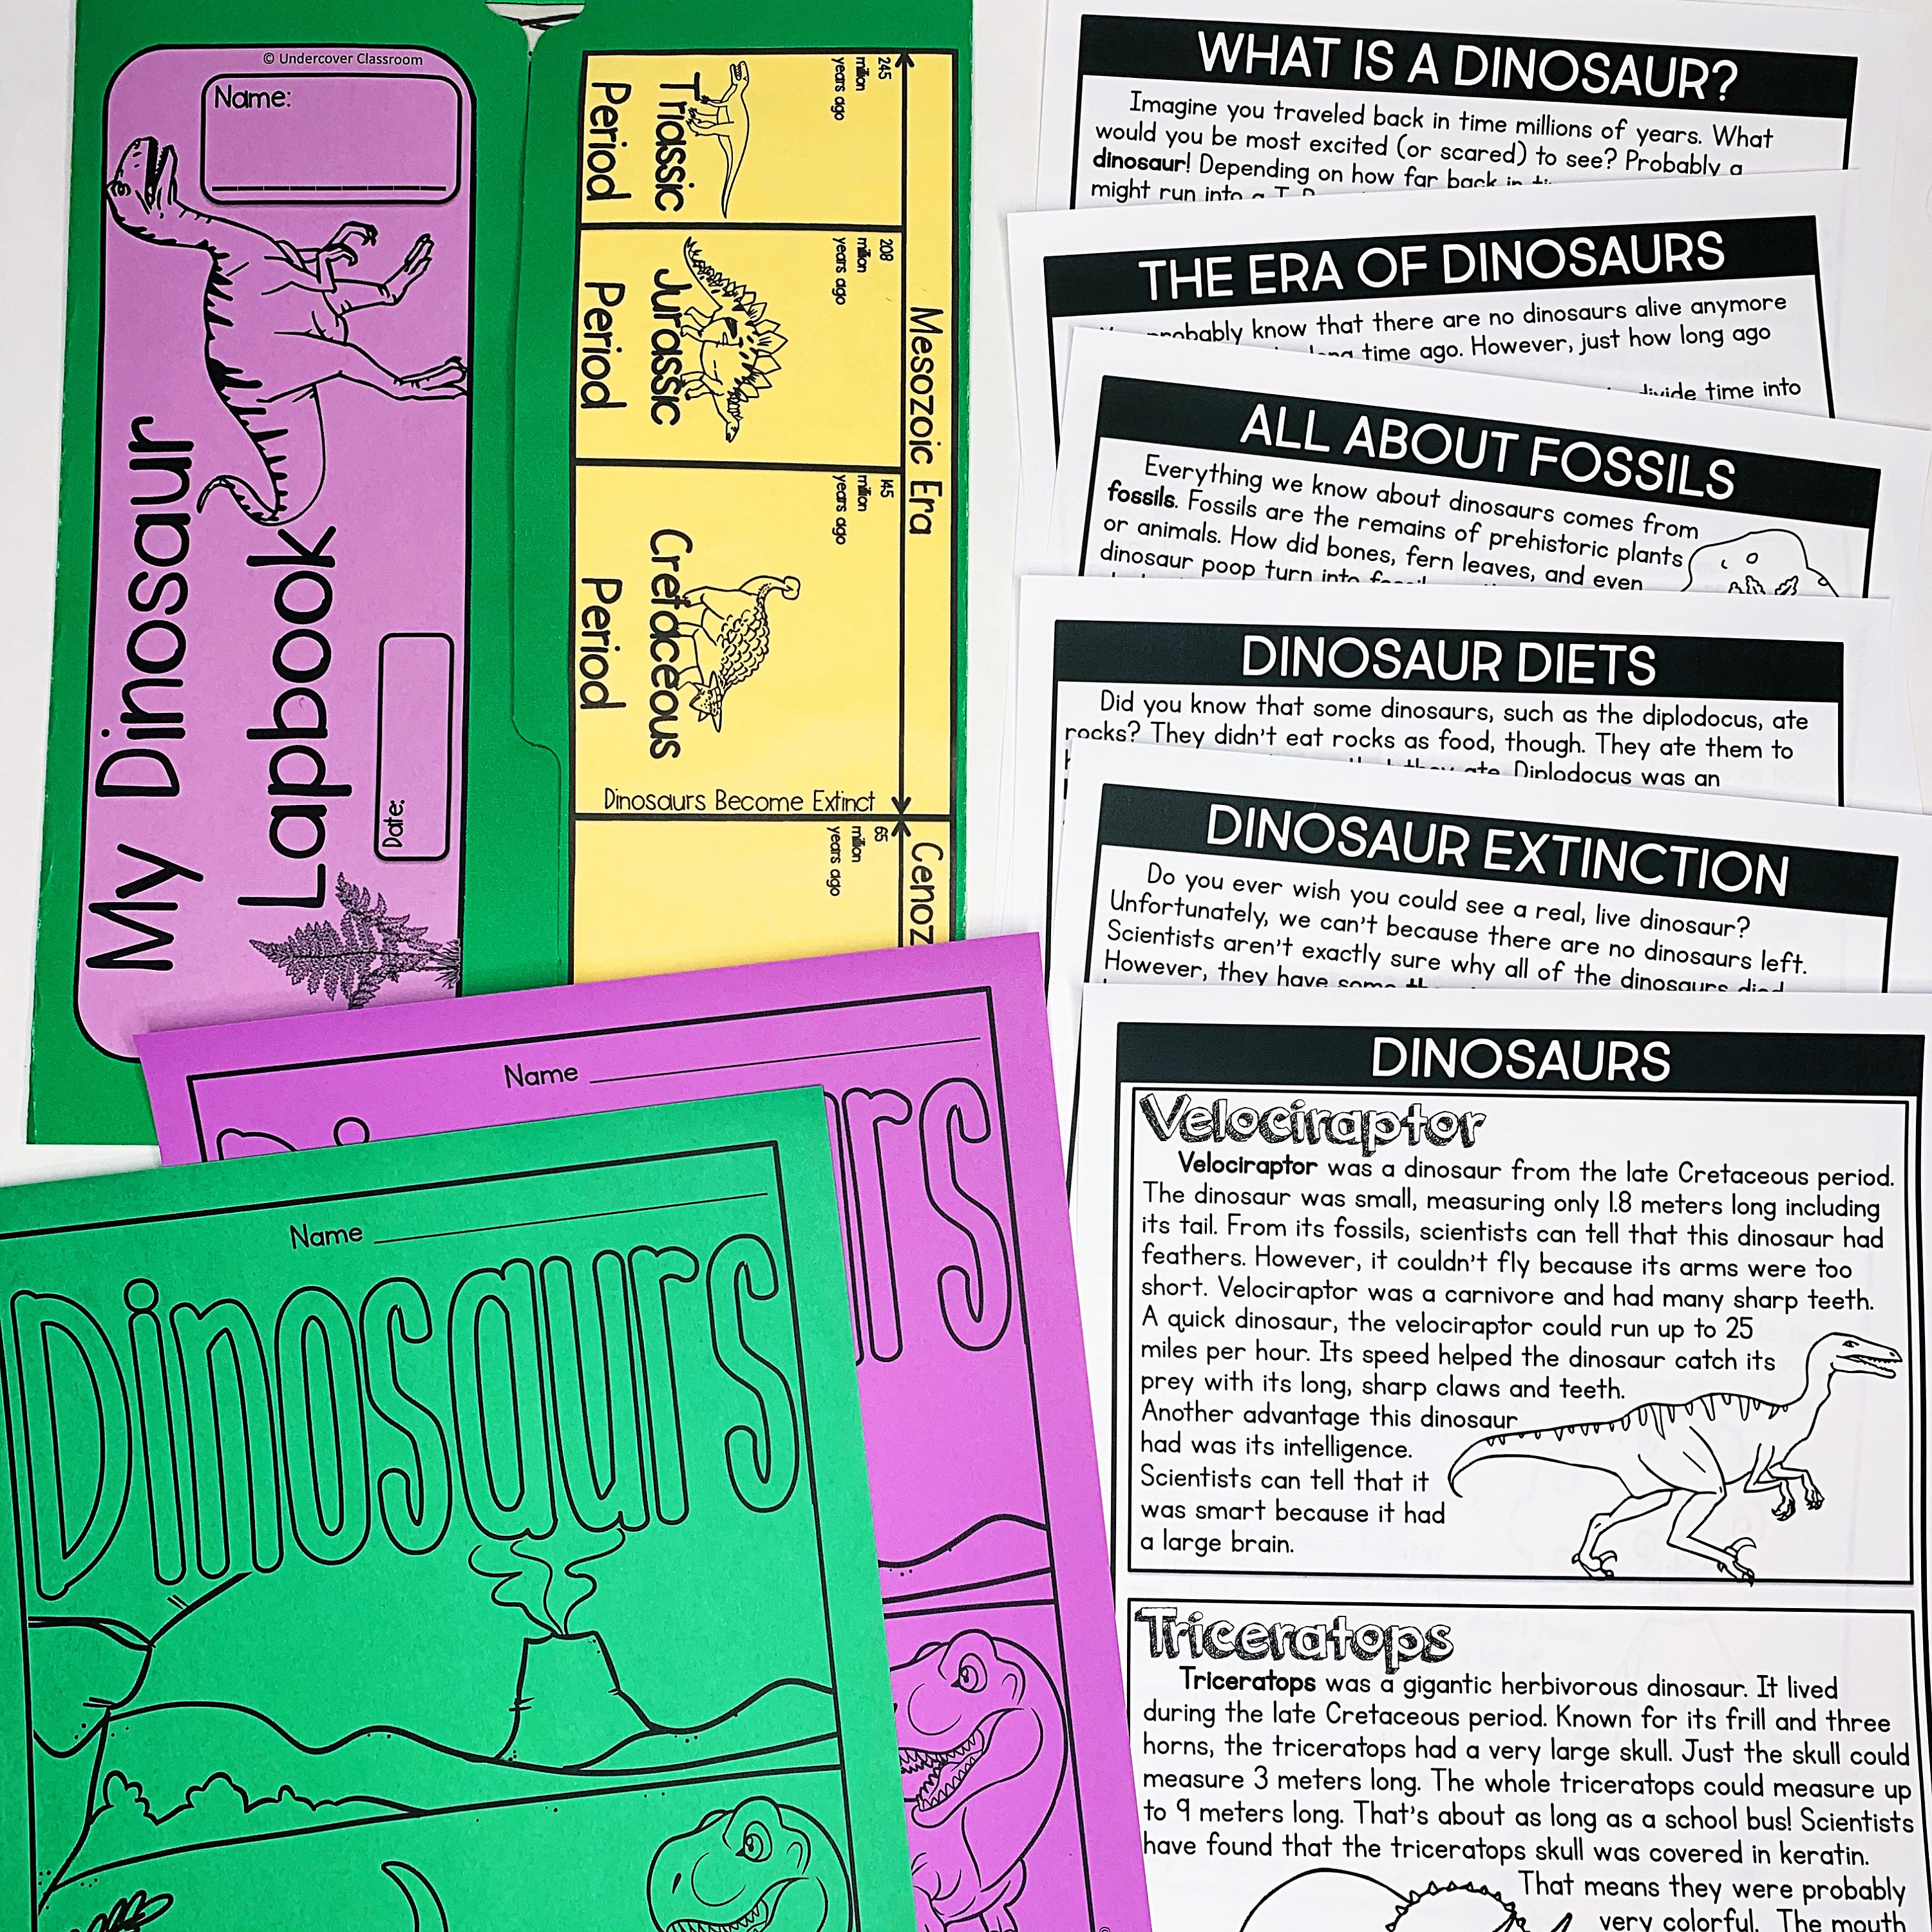 © Undercover Classroom
Name:
My Dinosaur
Lapbook
Date:
Mesozoic Era
245
million
years ago
Triassic
Period
208
million
years ago
Jurassic
Period
145
million
years ago
Cretaceous
Period
Dinosaurs Become Extinct
Cenoz
65
million
years ago
WHAT IS A DINOSAUR?
Imagine you traveled back in time millions of years. What
would you be most excited (or scared) to see? Probably a
dinosaur! Depending on how far back in
might run into a T.
THE ERA OF DINOSAURS
probably know that there are no dinosaurs alive anymore
time ago. However, just how long ago
divide time into
ALL ABOUT FOSSILS
Everything we know about dinosaurs comes from
fossils. Fossils are the remains of prehistoric plants
or animals. How did bones, fern leaves, and even
dinosaur poop turn into
DINOSAUR DIETS
Did you know that some dinosaurs, such as the diplodocus, ate
rocks? They didn't eat rocks as food, though. They ate them to
they ate. Diplodocus was an
DINOSAUR EXTINCTION
Do you ever wish you could see a real, live dinosaur?
Unfortunately, we can't because there are no dinosaurs left.
Scientists aren't exactly sure why all of the dinosaurs died
However, they have some
DINOSAURS
Velociraptor
Velociraptor was a dinosaur from the late Cretaceous period.
The dinosaur was small, measuring only 1.8 meters long including
its tail. From its fossils, scientists can tell that this dinosaur had
feathers. However, it couldn't fly because its arms were too
short. Velociraptor was a carnivore and had many sharp teeth.
A quick dinosaur, the velociraptor could run up to 25
miles per hour. Its speed helped the dinosaur catch its
prey with its long, sharp claws and teeth.
Another advantage this dinosaur
had was its intelligence.
Scientists can tell that it
was smart because it had
a large brain.
Triceratops
Triceratops was a gigantic herbivorous dinosaur. It lived
during the late Cretaceous period. Known for its frill and three
horns, the triceratops had a very large skull. Just the skull could
measure 3 meters long. The whole triceratops could measure up
to 9 meters long. That's about as long as a school bus! Scientists
have found that the triceratops skull was covered in keratin.
That means they were probably
very colorful. The mouth
Name
rs
Name
Dinosaurs